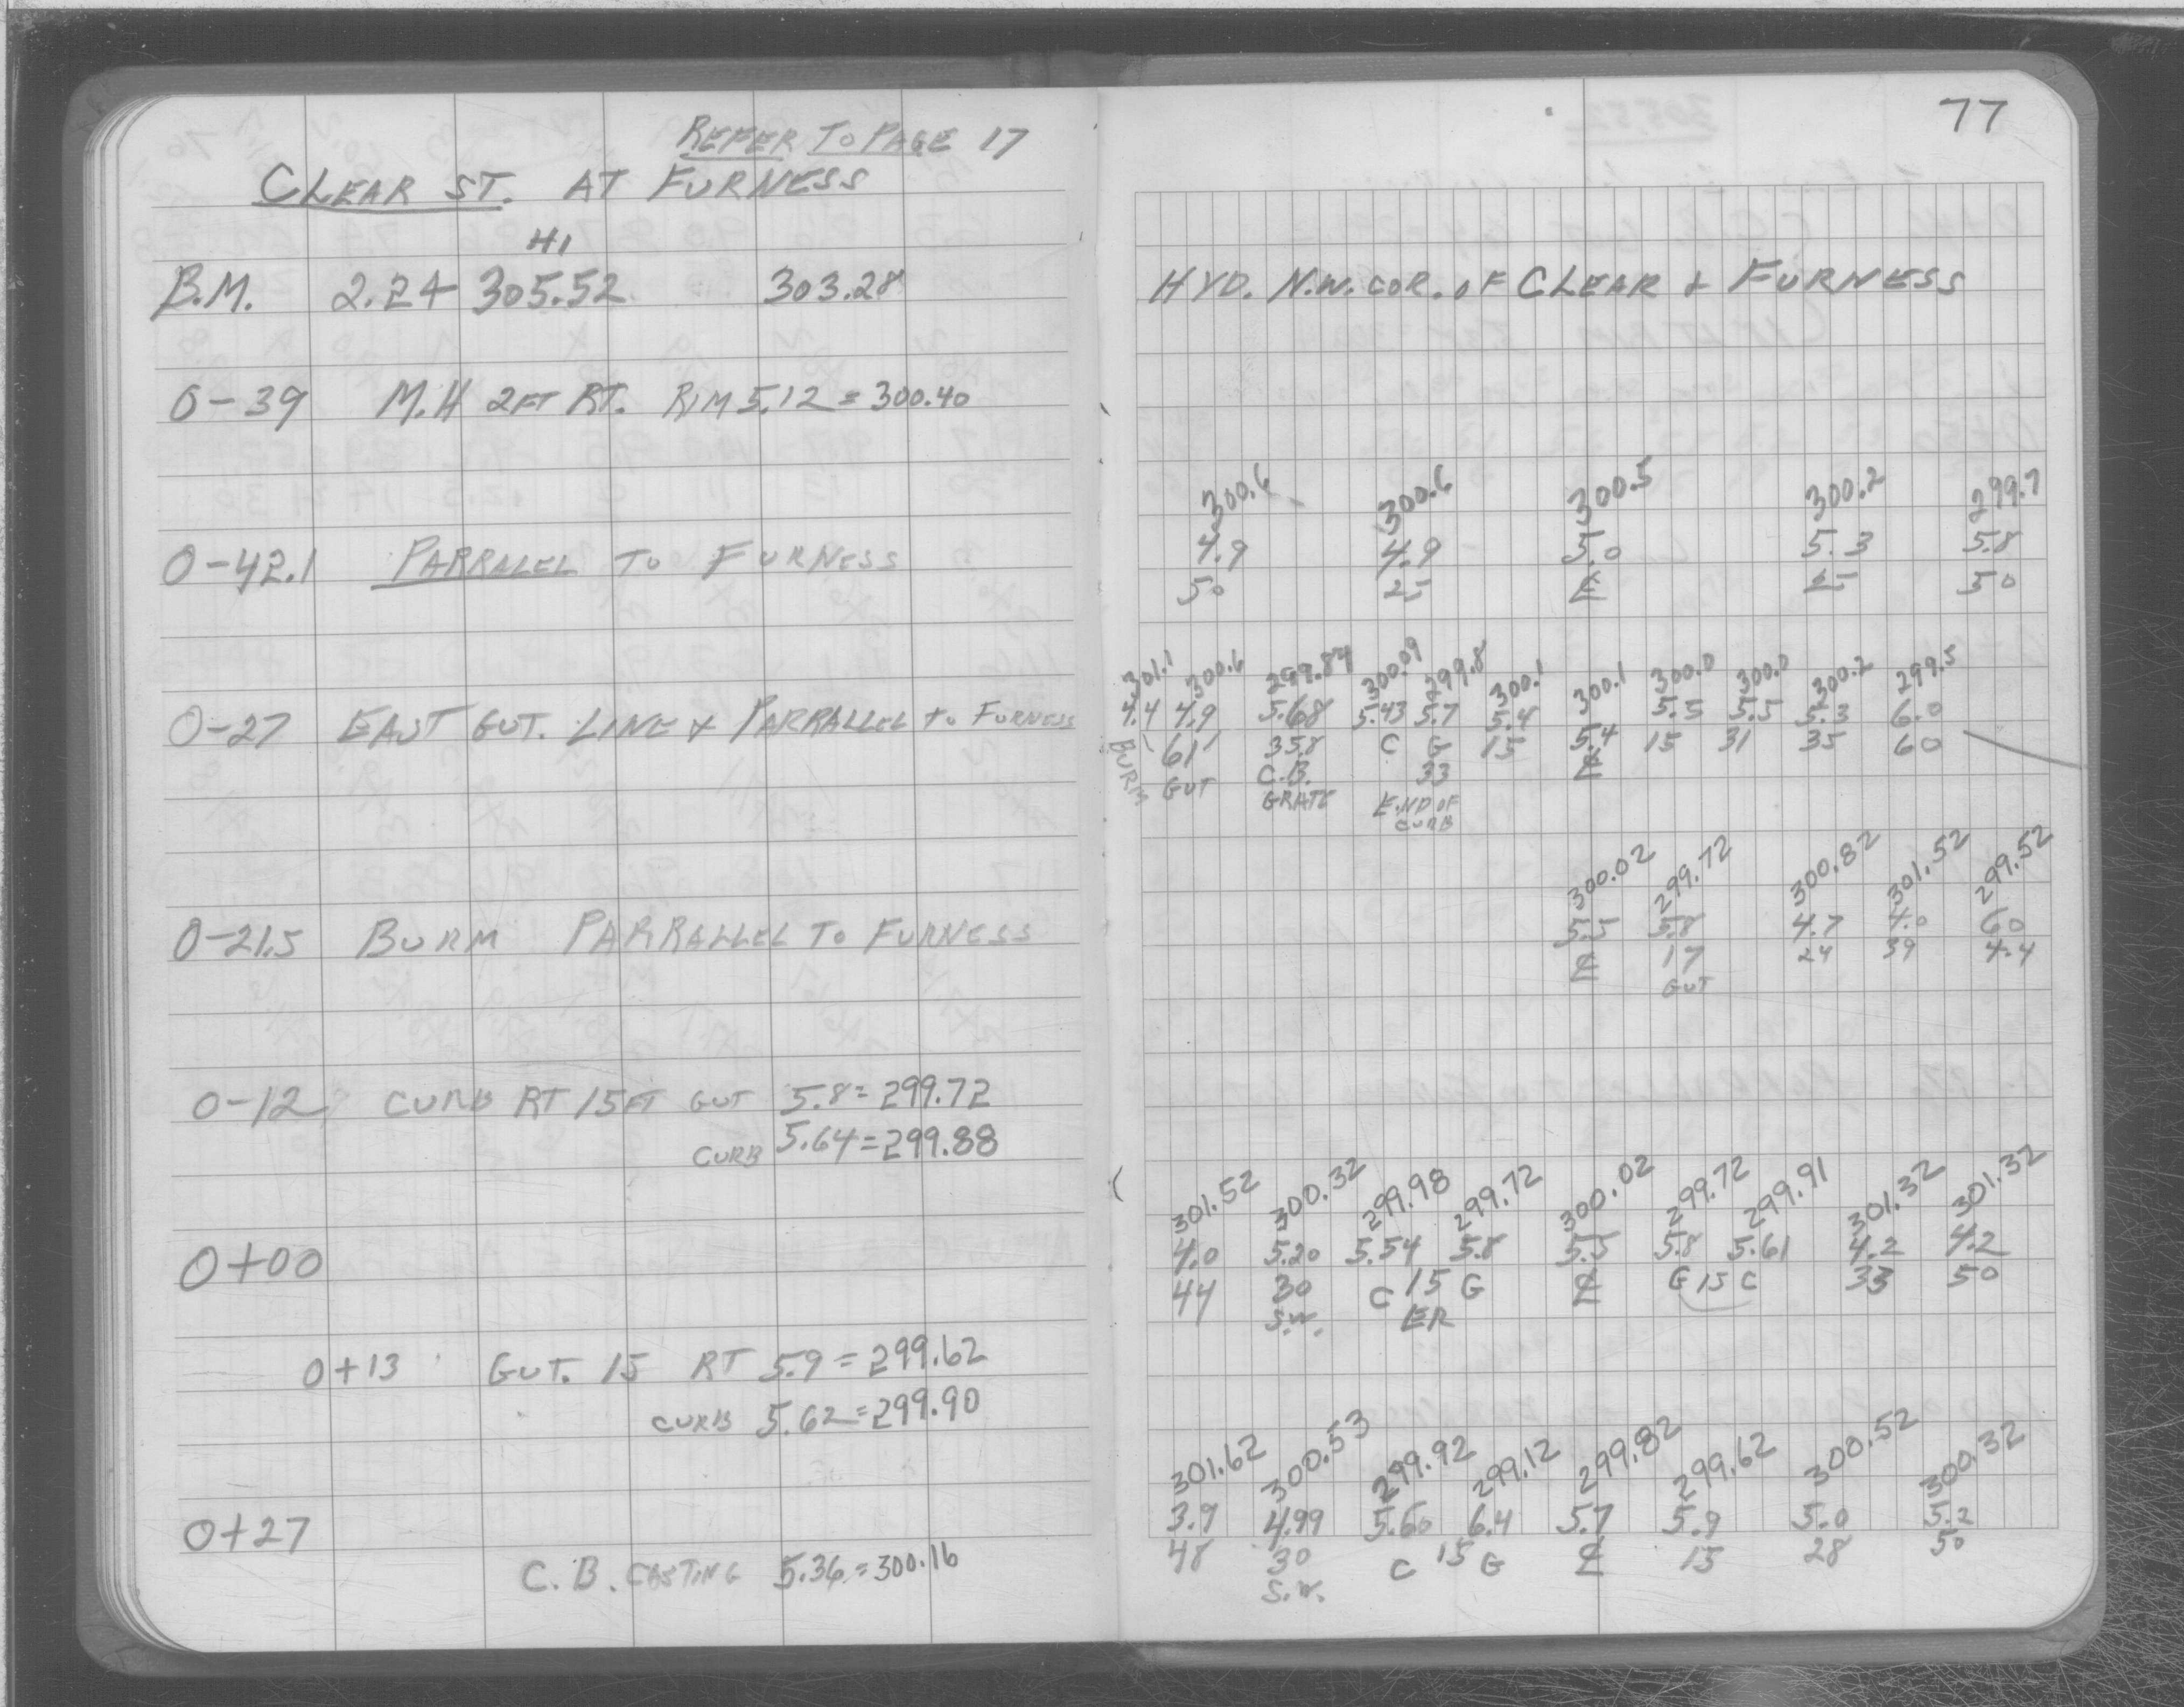 REFER TO PAGE 17
CLEAR ST. AT FURNESS
HI
B.M. 2.24 305.52 303.28
0-39 M.H 2FT RT. RIM 5.12 = 300.40
0-42.1 PARRALEL TO FURNESS
0-27 EAST GUT. LINE & PARRALLEL to FURNESS
0-21.5 BURM PARRALLEL TO FURNESS
0-12 CURB RT 15FT GUT 5.8 = 299.72
CURB 5.64 = 299.88
0+00
0+13 GUT. 15 RT 5.9 = 299.62
CURB 5.62 = 299.90
0+27
C.B. CASTING 5.36 = 300.16
77
HYD. N.W. COR. OF CLEAR & FURNESS
300.6 300.6 300.5 300.2 299.7
4.9 4.9 5.0 5.3 5.8
50 25 ℄ 25 50
301.1 300.6 299.84 300.09 299.8 300.1 300.1 300.0 300.0 300.2 299.5
4.4 4.9 5.68 5.43 5.7 5.4 5.4 5.5 5.5 5.3 6.0
BURM 61' 35.8 C G 15 ℄ 15 31 35 60
GUT C.B. 33
GRATE END OF
CURB
300.02 299.72 300.82 301.52 299.52
5.5 5.8 4.7 4.0 60
℄ 17 24 39 4.4
GUT
301.52 300.32 299.98 299.72 300.02 299.72 299.91 301.32 301.32
4.0 5.20 5.54 5.8 5.5 5.8 5.61 4.2 4.2
44 30 C 15 G ℄ G 15 C 33 50
S.W. ER
301.62 300.53 299.92 299.12 299.82 299.62 300.52 300.32
3.9 4.99 5.60 6.4 5.7 5.9 5.0 5.2
48 30 C 15 G ℄ 15 28 50
S.W.